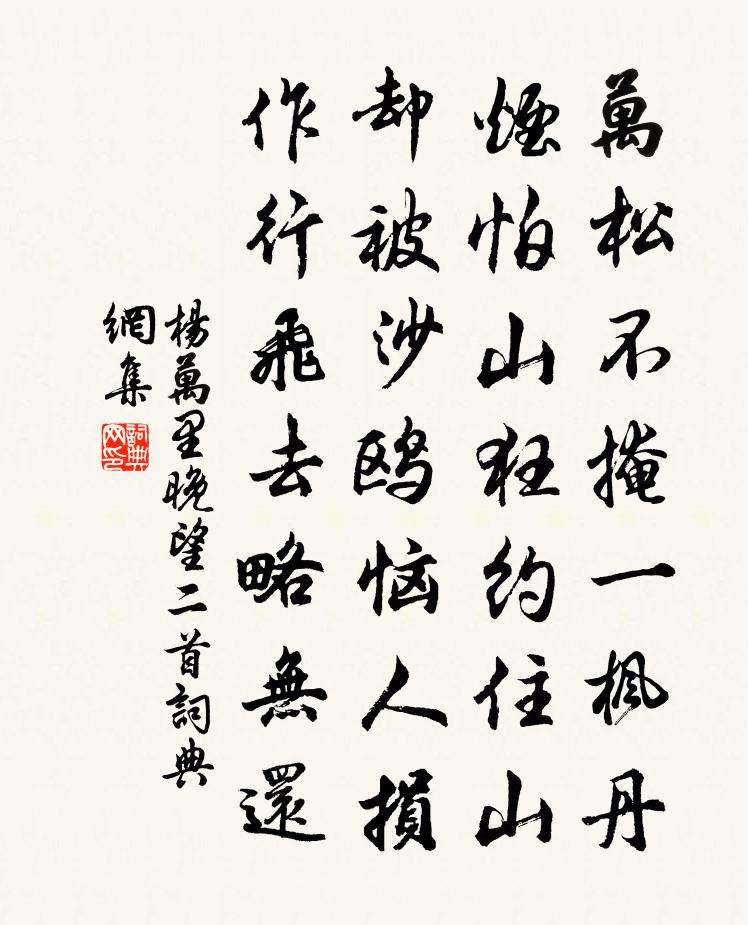 萬松不掩一楓丹
煙怕山狂約住山
却被沙鸥恼人損
作行飛去略無還
楊萬里晚望二首詞典
網集
詞典
网印